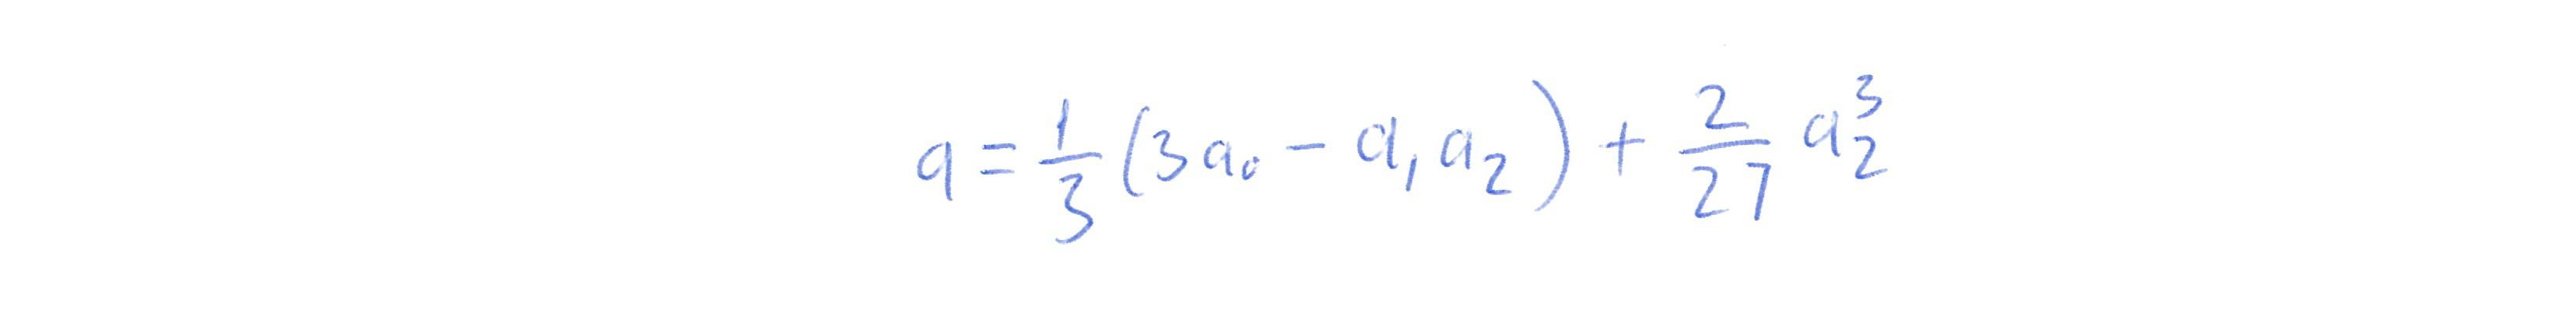 a = \frac{1}{3} (3a_0 - a_1 a_2) + \frac{2}{27} a_2^3